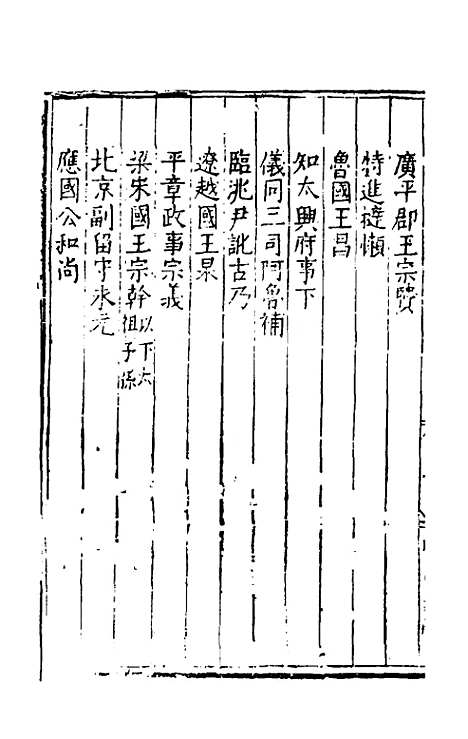 廣平郡王宗賢
特進撻懶
魯國王昌
知太興府事卞
儀同三司阿魯補
臨洮尹訛古乃
遼越國王杲
平章政事宗義
梁宋國王宗幹以下太祖子孫
北京副留守永元
應國公和尚